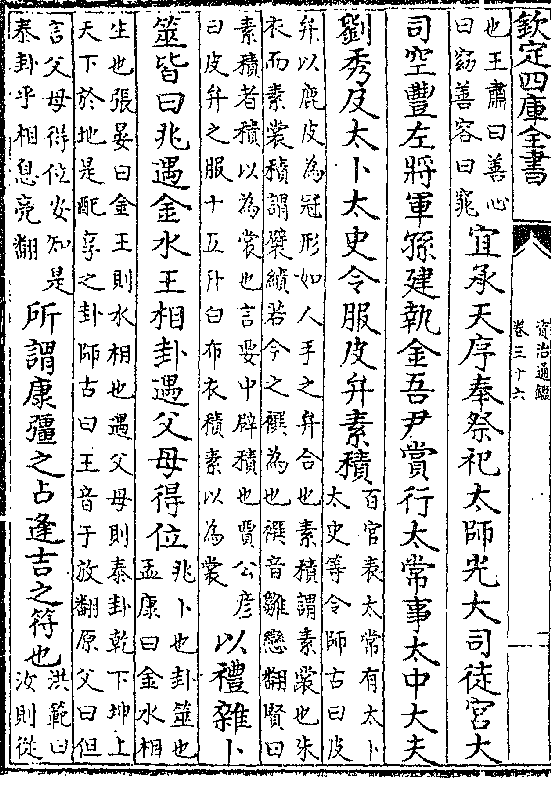 欽定四庫全書
資治通鑑
卷三十六
也王肅曰善心
曰窈善容曰窕
宜承天序奉祭祀太師光大司徒宫大
司空豐左將軍孫建執金吾尹賞行太常事太中大夫
劉秀及太卜太史令服皮弁素積
百官表太常有太卜
太史等令師古曰皮
弁以鹿皮為冠形如人手之弁合也素積謂素裳也朱
衣而素裳積謂襞績若今之襈為也襈音雛戀翻賢曰
素積者積以為裳也言要中辟積也賈公彦
曰皮弁之服十五升白布衣積素以為裳
以禮雜卜
筮皆曰兆遇金水王相卦遇父母得位
兆卜也卦筮也
孟康曰金水相
生也張晏曰金王則水相也遇父母則泰卦乾下坤上
天下於地是配享之卦師古曰王音于放翻原父曰但
言父母得位安知是
泰卦乎相息亮翻
所謂康彊之占逢吉之符也
洪範曰
汝則從